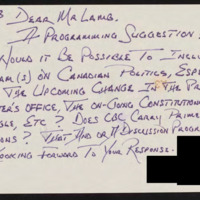 Dear Mr Lamb.
A Programming Suggestion:
Would it Be Possible To Inclu
am(s) on Canadian Politics, Espe
The Upcoming Change In The Pr
ter's Office, The On-Going Constitution
gle, Etc? Does CBC Carry Prime
ions? That And/Or A Discussion Progra
ooking Forward To Your Response.